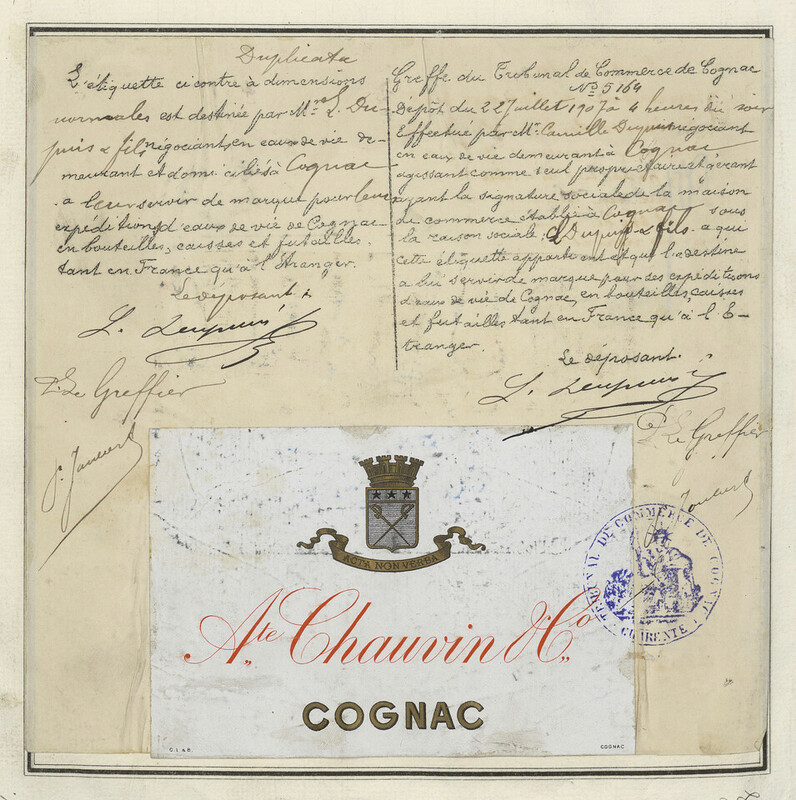 Duplicata
L'étiquette ci contre à dimensions
normales est destinée par Mrs L. Du-
puis & fils négociant, en eaux de vie de-
meurant et domiciliés à Cognac
a leur servir de marque pour leur
expédition d'eaux de vie de Cognac
en bouteilles, caisses et futailles.
tant en France qu'à l'Etranger.
Le déposant:
L. Dupuis
P. Le Greffier
Greffe du Tribunal de Commerce de Cognac
No 5164
Dépôt du 22 Juillet 1907 à 4 heures du soir
Effectué par Mr. Camille Dupuis négociant
en eaux de vie demeurant à Cognac
agissant comme seul propriétaire et gérant
ayant la signature sociale de la maison
de commerce établie à Cognac sous
la raison sociale: L. Dupuis & fils. a qui
cette étiquette appartient et qui la destine
a lui servir de marque pour ses expéditions
d'eaux de vie de Cognac, en bouteilles, caisses
et futailles tant en France qu'à l'E-
tranger.
Le déposant.
L. Dupuis
P. Le Greffier
ACTA NON VERBA
Ate Chauvin & Co
COGNAC
C. L. & D.
COGNAC
TRIBUNAL DE COMMERCE DE COGNAC
CHARENTE